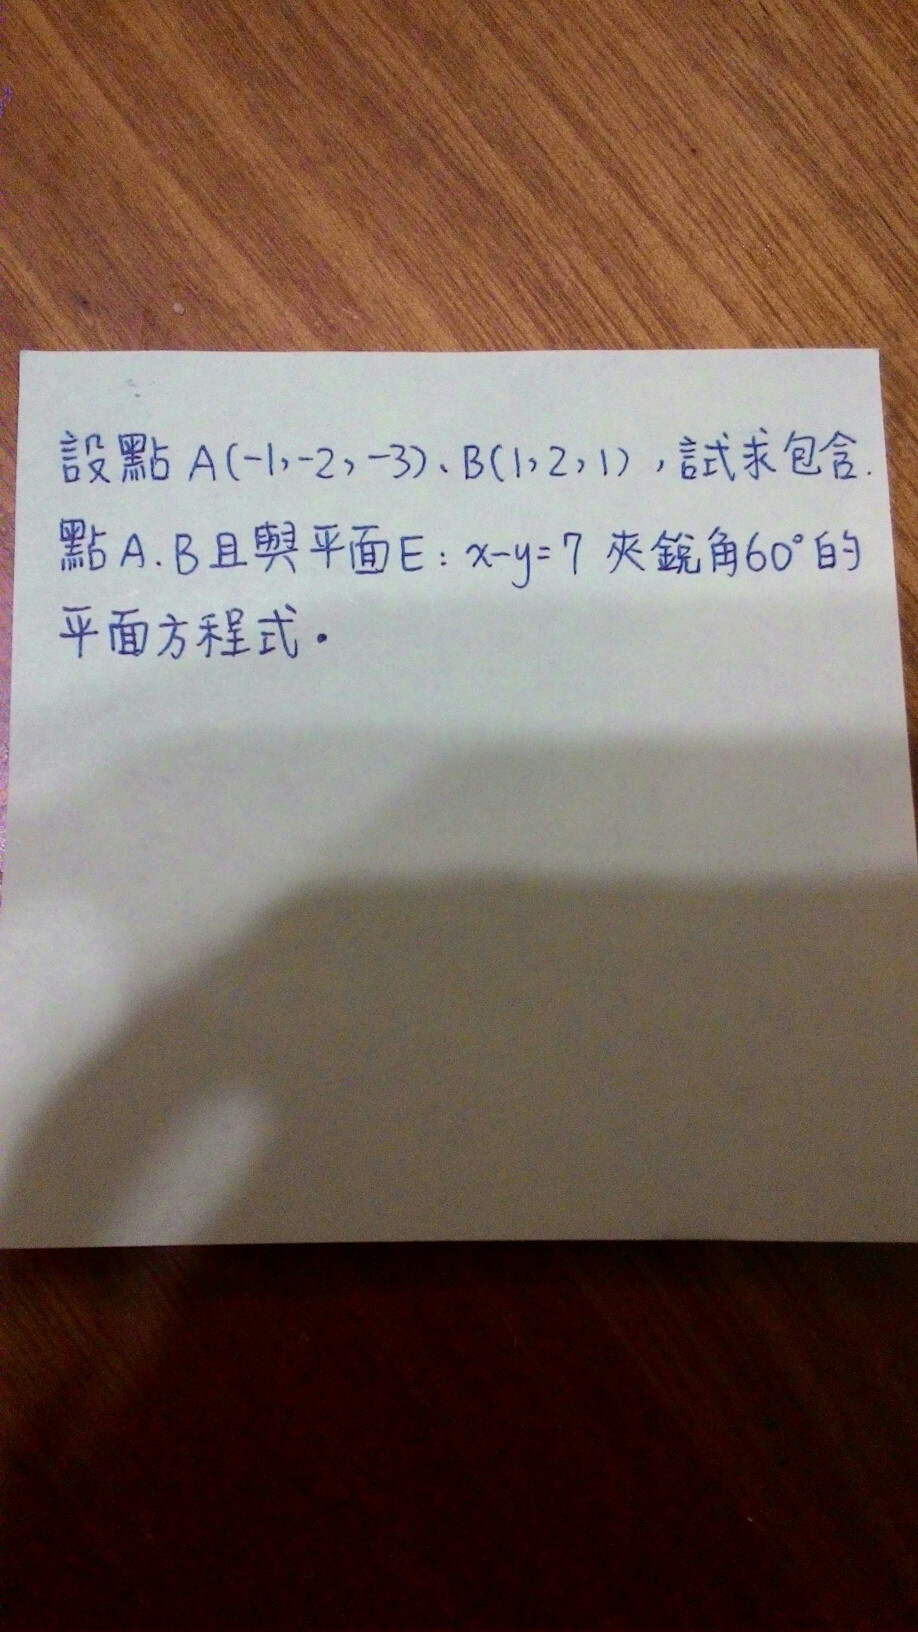 設點 A(-1,-2,-3)、B(1,2,1),試求包含.
點A.B且與平面E:x-y=7 夾銳角60°的
平面方程式。